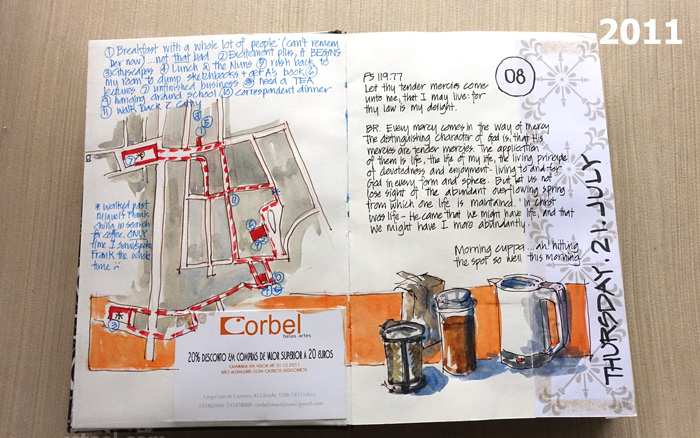 2011
① Breakfast with a whole lot of people (can't remem
ber now ... not that bad ② Excitement plus, it BEGINS
③ Cityscapes ④ Lunch @ the Nuns ⑤ rush back to
my room to dump sketchbooks + get A's book ⑥
lectures ⑦ unfinished business ⑧ need a TEA
⑨ hanging around school ⑩ correspondent dinner
⑪ walk back z Cathy
* walked past
Miguel & Frank
ching in search
for coffee. ONLY
time I saw
Frank the whole
time
Corbel
belas artes
20% DESCONTO EM COMPRAS DE VALOR SUPERIOR A 20 EUROS
CAMPANHA EM VIGOR ATÉ 31.12.2011
NÃO ACUMULÁVEL COM OUTROS DESCONTOS
PS 119:77
Let thy tender mercies come
unto me, that I may live: for
thy law is my delight.
08
BR. Every mercy comes in the way of mercy
The distinguishing character of God is, that His
mercies are tender mercies. The application
of them is life, the life of my life, the living principle
of devotedness and enjoyment - living to and for
God in every form and sphere. But let us not
lose sight of the abundant overflowing spring
from which one life is maintained. In Christ
was life - He came that we might have life, and that
we might have I more abundantly.
Morning cuppa ... ah! hitting
the spot so well this morning
THURSDAY. 21. JULY